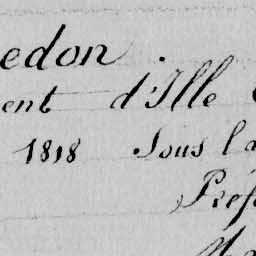 edon.
ent d'Ille
1818 Sous la
Préf